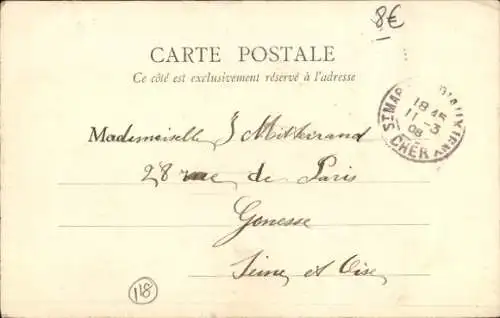 8€
CARTE POSTALE
Ce côté est exclusivement réservé à l'adresse
ST MAR D'AUXIGNY
18 45
11 -3
08
CHER
Mademoiselle J Mitterrand
28 rue de Paris
Gonesse
Seine et Oise
118